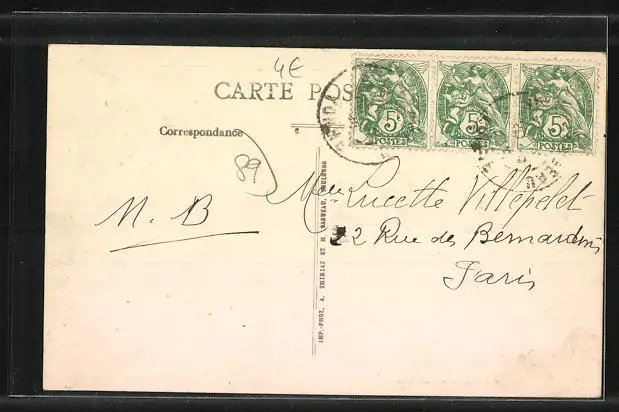 4€
CARTE POS
Correspondance
89
5c 5c 5c
POSTES POSTES POSTES
M. B
Lucette Villepelet
22 Rue des Bernardins
Paris
IMP.-PHOT. A. THIRIAT ET H. BASUYAU, TOULOUSE